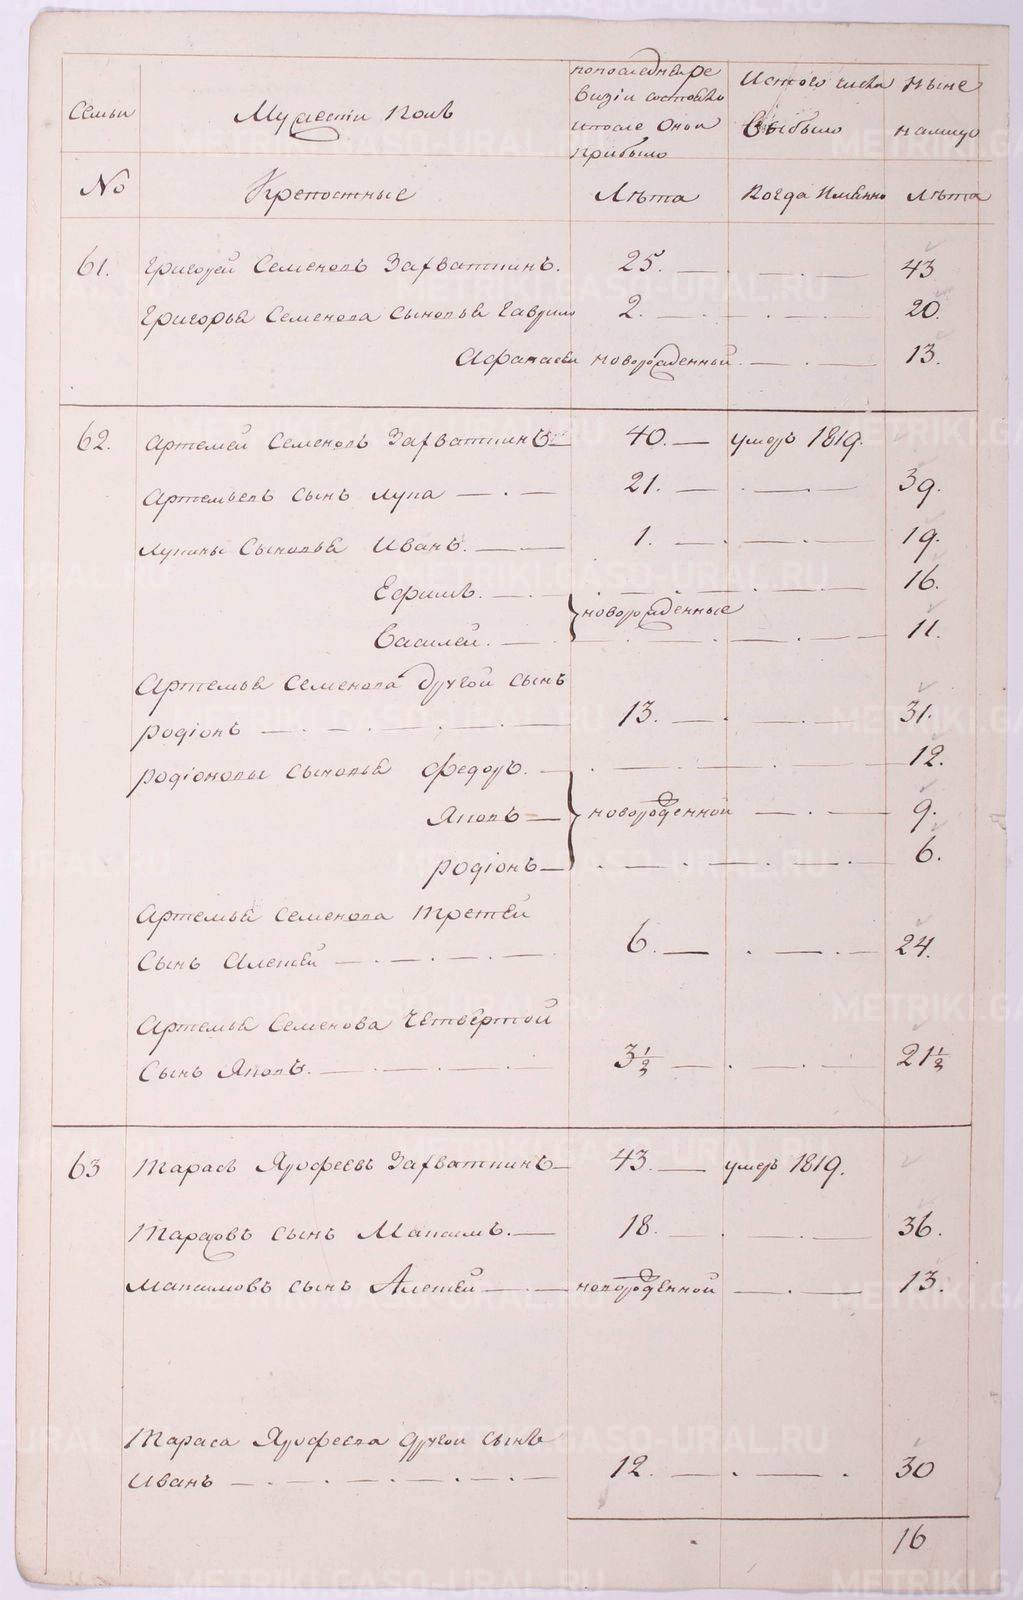 Семьи
Мужеска полъ
попоследнеире
визіи состояло
ипосле Оной
прибыло
Истого числа
выбыло
Ныне
налицо
No
Крепостные
Лѣта
Когда Имянно
Лѣта
61. Григорей Семеновъ Захваткинъ. 25. 43
Григорья Семенова сыновья Гаврило 2. 20.
Афанасеи новорожденный. 13.
62. Артемей Семеновъ Захваткинъ 40. умеръ 1819.
Артемьевъ сынъ Лупа 21. 39.
Лупины Сыновья Иванъ. 1. 19.
Ефимъ. 16.
новорожденные
Василей. 11.
Артемья Семенова другой сынъ
родіонъ 13. 31.
родіоновы сыновья Федоръ. 12.
Яковъ новорожденной 9.
родіонъ 6.
Артемья Семенова третей
Сынъ Алексей 6. 24.
Артемья Семенова Четвертой
Сынъ Яковъ. 3 1/2 21 1/2
63 Тарасъ Ярофеевъ Захваткинъ 43. умеръ 1819.
Тарасовъ сынъ Максимъ. 18. 36.
Максимовъ сынъ Алексей новорожденной 13.
Тараса Ярофеева другой сынъ
Иванъ 12. 30
16
METRIKI.GASO-URAL.RU